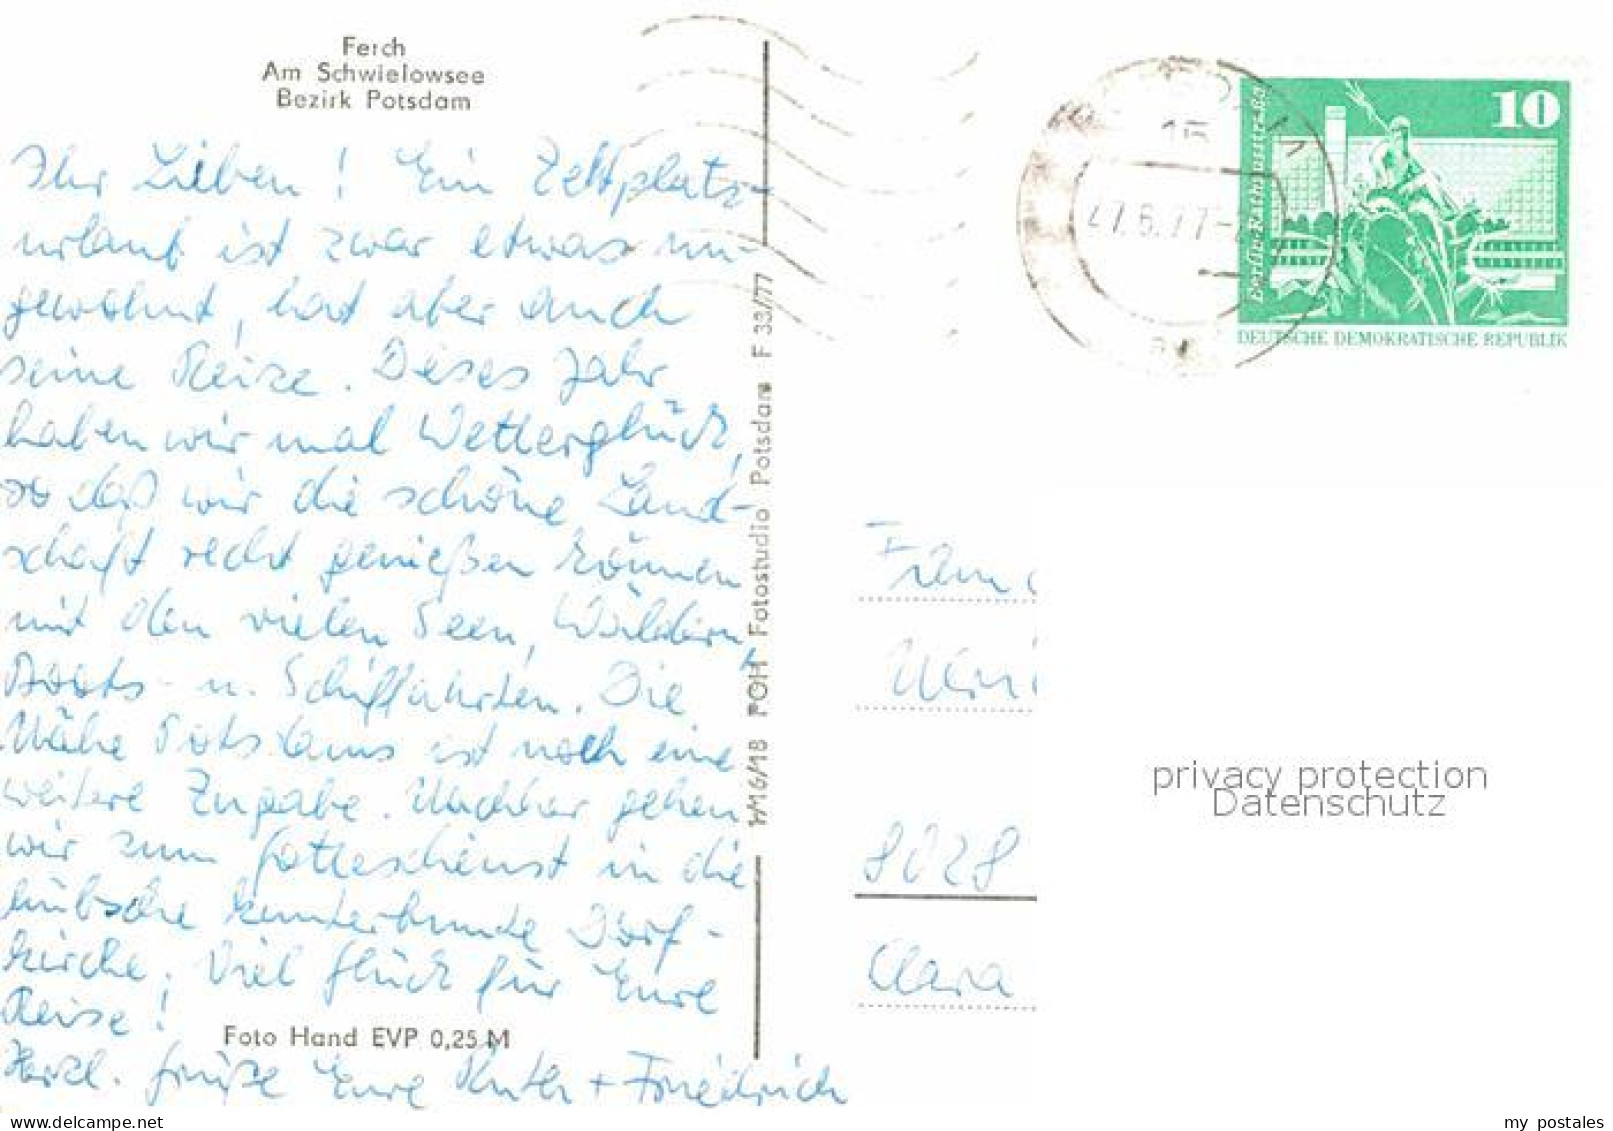 Ferch
Am Schwielowsee
Bezirk Potsdam
Ihr Lieben! Ein Zeltplatz-
urlaub ist zwar etwas un-
gewohnt, hat aber auch
seine Reize. Dieses Jahr
haben wir mal Wetterglück,
so daß wir die schöne Land-
schaft recht genießen können
mit den vielen Seen, Wäldern,
Boots- u. Schiffahrten. Die
Nähe Potsdams ist noch eine
weitere Zugabe. Nachher gehen
wir zum Gottesdienst in die
hübsche kunterbunte Dorf-
kirche. Viel Glück für Eure
Reise!
Herzl. Grüße Eure Ruth + Friedrich
Foto Hand EVP 0,25 M
W16/18 POH Fotostudio Potsdam F 33/77
15
27.6.77
10
Berlin-Rathausstraße
DEUTSCHE DEMOKRATISCHE REPUBLIK
Fam
8028
Clara
privacy protection
Datenschutz
my postales